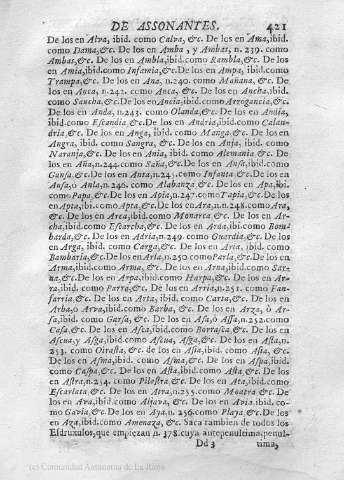 DE ASSONANTES. 421
De los en Alva, ibid. como Calva, &c. De los en Ama, ibid.
como Dama, &c. De los en Amba, y Ambas, n. 239. como
Ambas, &c. De los en Ambla, ibid. como Rambla, &c. De los
en Amia, ibid. como Infamia, &c. De los en Ampa, ibid. como
Trampa, &c. De los en Ana, n. 240. como Mañana, &c. De los
en Anca, n. 242. como Anca, &c. De los en Ancha, ibid.
como Sancha, &c. De los en Ancia, ibid. como Arrogancia, &c.
De los en Anda, n. 243. como Olanda, &c. De los en Andia,
ibid. como Escandia, &c. De los en Andria, ibid. como Calan-
dria, &c. De los en Anga, ibid. como Manga, &c. De los en
Angra, ibid. como Sangra, &c. De los en Anja, ibid. como
Naranja, &c. De los en Ania, ibid. como Alemania, &c. De los
en Aña, n. 244. como Saña, &c. De los en Ansa, ibid. como
Gansa, &c. De los en Anta, n. 245. como Infanta, &c. De los en
Ansa, ò Anla, n. 246. como Alabanza, &c. De los en Apa, ibi.
como Papa, &c. De los en Apia, n. 247. como Tapia, &c. De los
en Apta, ibi. como Apta, &c. De los en Ara, n. 248. como Ara,
&c. De los en Arca, ibid. como Monarca, &c. De los en Ar-
cha, ibid. como Escarcha, &c. De los en Arda, ibi. como Bom-
barda, &c. De los en Ardia, n. 249. como Guardia, &c. De los
en Arga, ibid. como Carga, &c. De los en Aria, ibid. como
Bambaria, &c. De los en Arla, n. 250. como Parla, &c. De los en
Arma, ibid. como Arma, &c. De los en Arna, ibid. como Sar-
na, &c. De los en Arpa, ibid. como Harpa, &c. De los en Ar-
ra, ibid. como Parra, &c. De los en Arria, n. 251. como Fan-
farria, &c. De los en Arta, ibid. como Carta, &c. De los en
Arba, ò Arva, ibid. como Barba, &c. De los en Arza, ò Ar-
sa, ibid. como Garsa, &c. De los en Asa, ò Assa, n. 252. como
Casa, &c. De los en Asca, ibid. como Borrasca, &c. De los en
Ascua, y Asga, ibid. como Ascua, Asga, &c. De los en Asia, n.
253. como &c. de los en Asia, ibid. como Asia, &c.
De los en Asma, ibid. como Asma, &c. De los en Aspa, ibid.
como Caspa, &c. De los en Asta, ibid. como Asta, &c. De los
en Astra, n. 254. como Pilastra, &c. De los en Ata, ibid. como
Escarlata, &c. De los en Atra, n. 255. como &c. De los
en Ava, ibid. como Aljava, &c. De los en Avia, ibid. co-
mo Gavia, &c. De los en Aya, n. 256. como Playa, &c. De los
en Aza, ibid. como Amenaza, &c. Saca tambien de todos los
Esdruxulos, que empiezan n. 378. cuya antepenultima, penul-
Dd 3 tima,
(c) Comunidad Autónoma de La Rioja